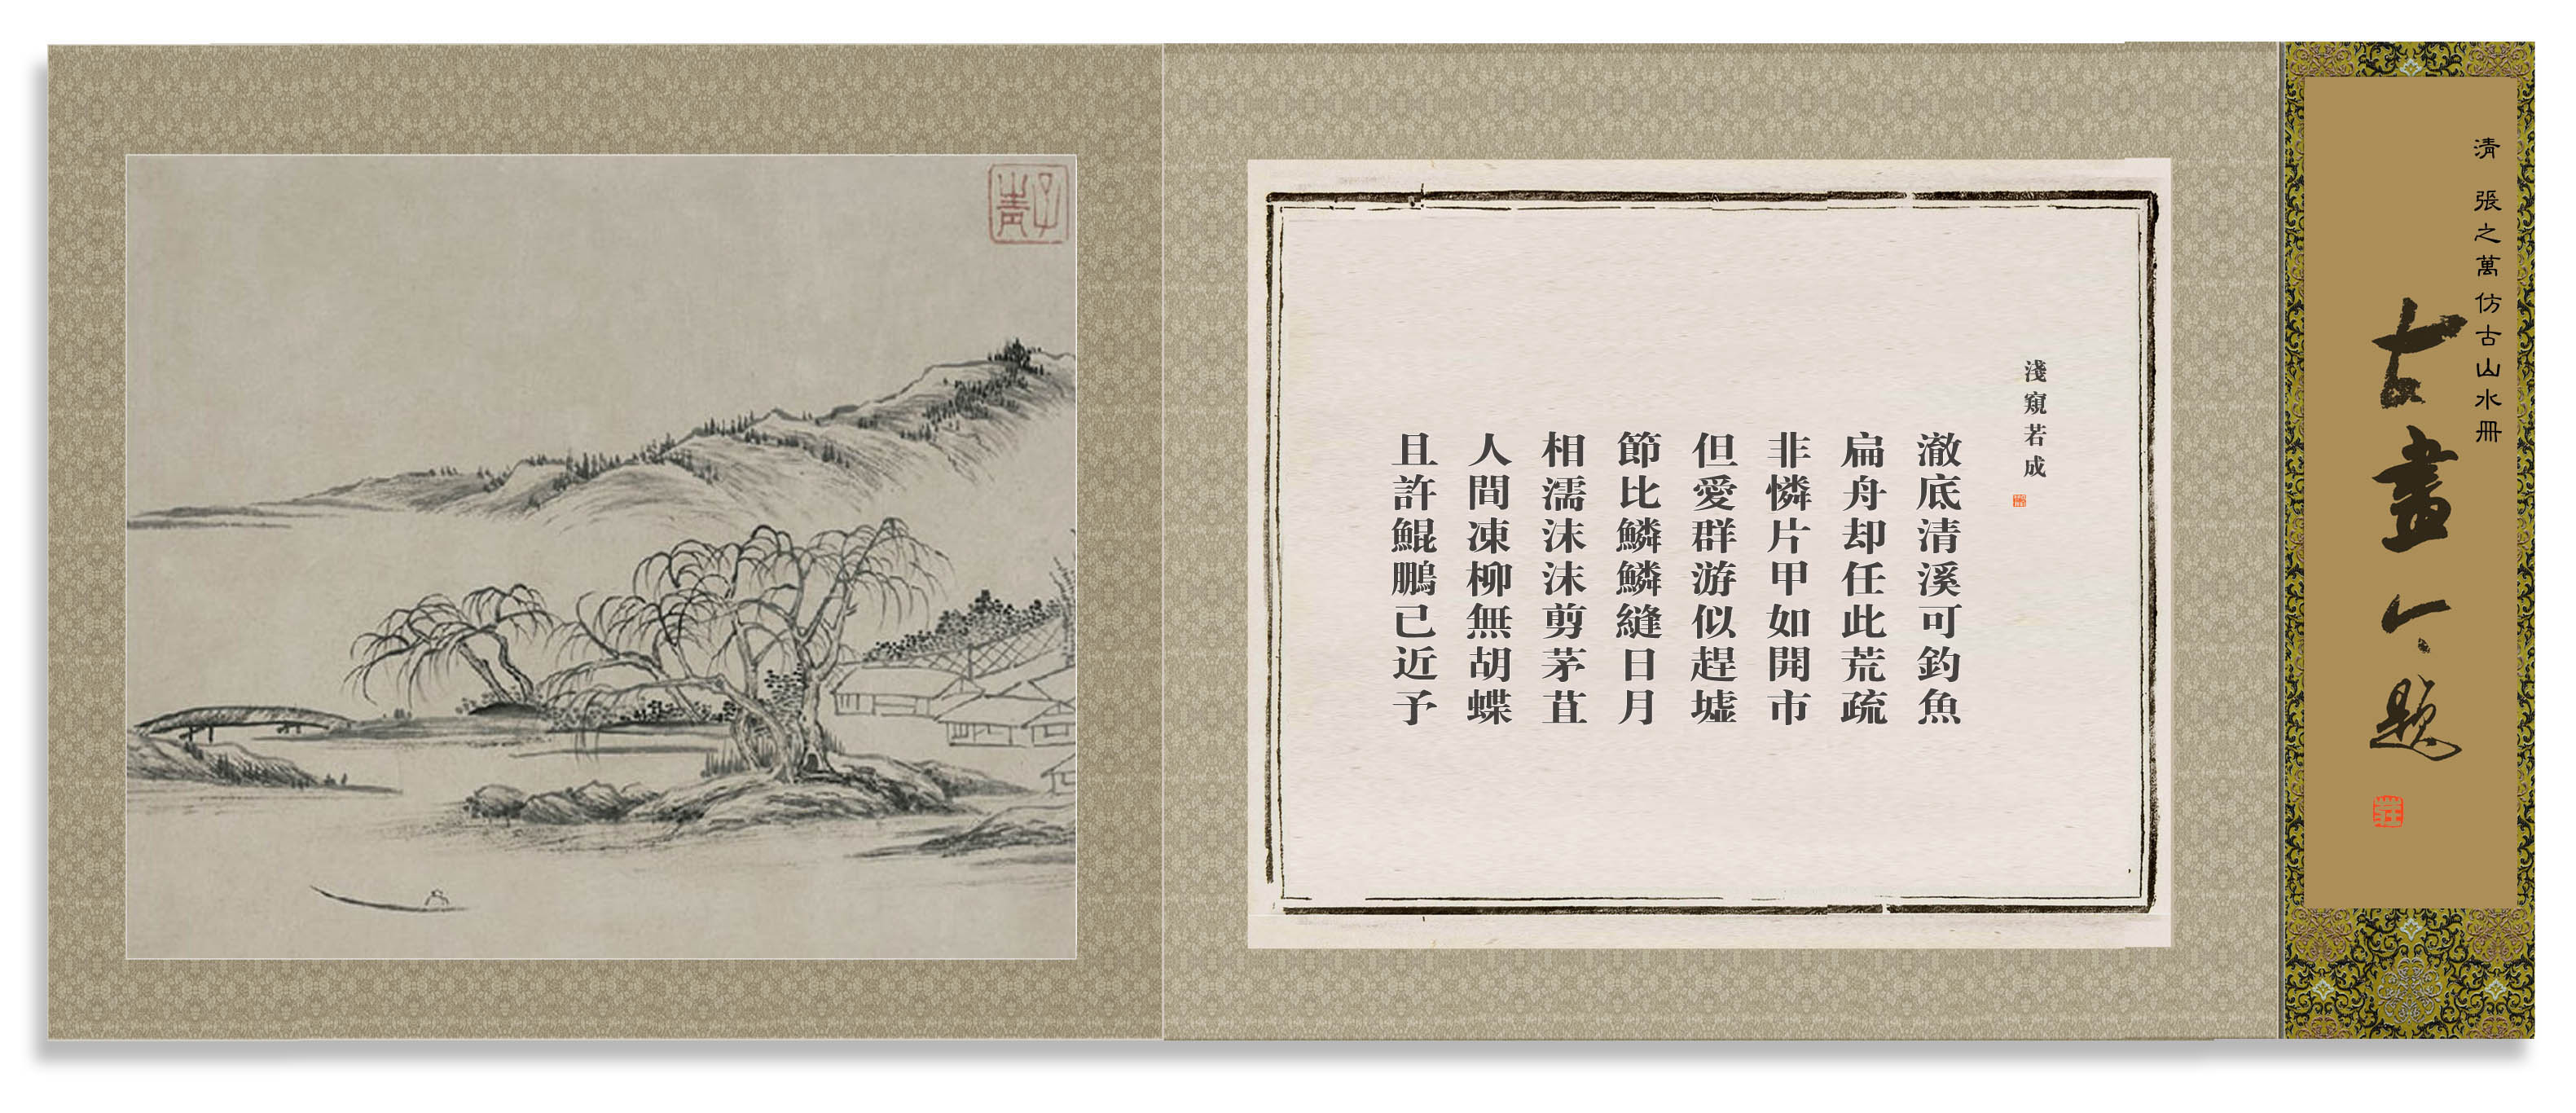 清 張之萬仿古山水冊
古畫今題
淺窺若成
澈底清溪可釣魚
扁舟却任此荒疏
非憐片甲如開市
但愛群游似趕墟
節比鱗鱗縫日月
相濡沫沫剪茅苴
人間凍柳無胡蝶
且許鯤鵬已近予
子青